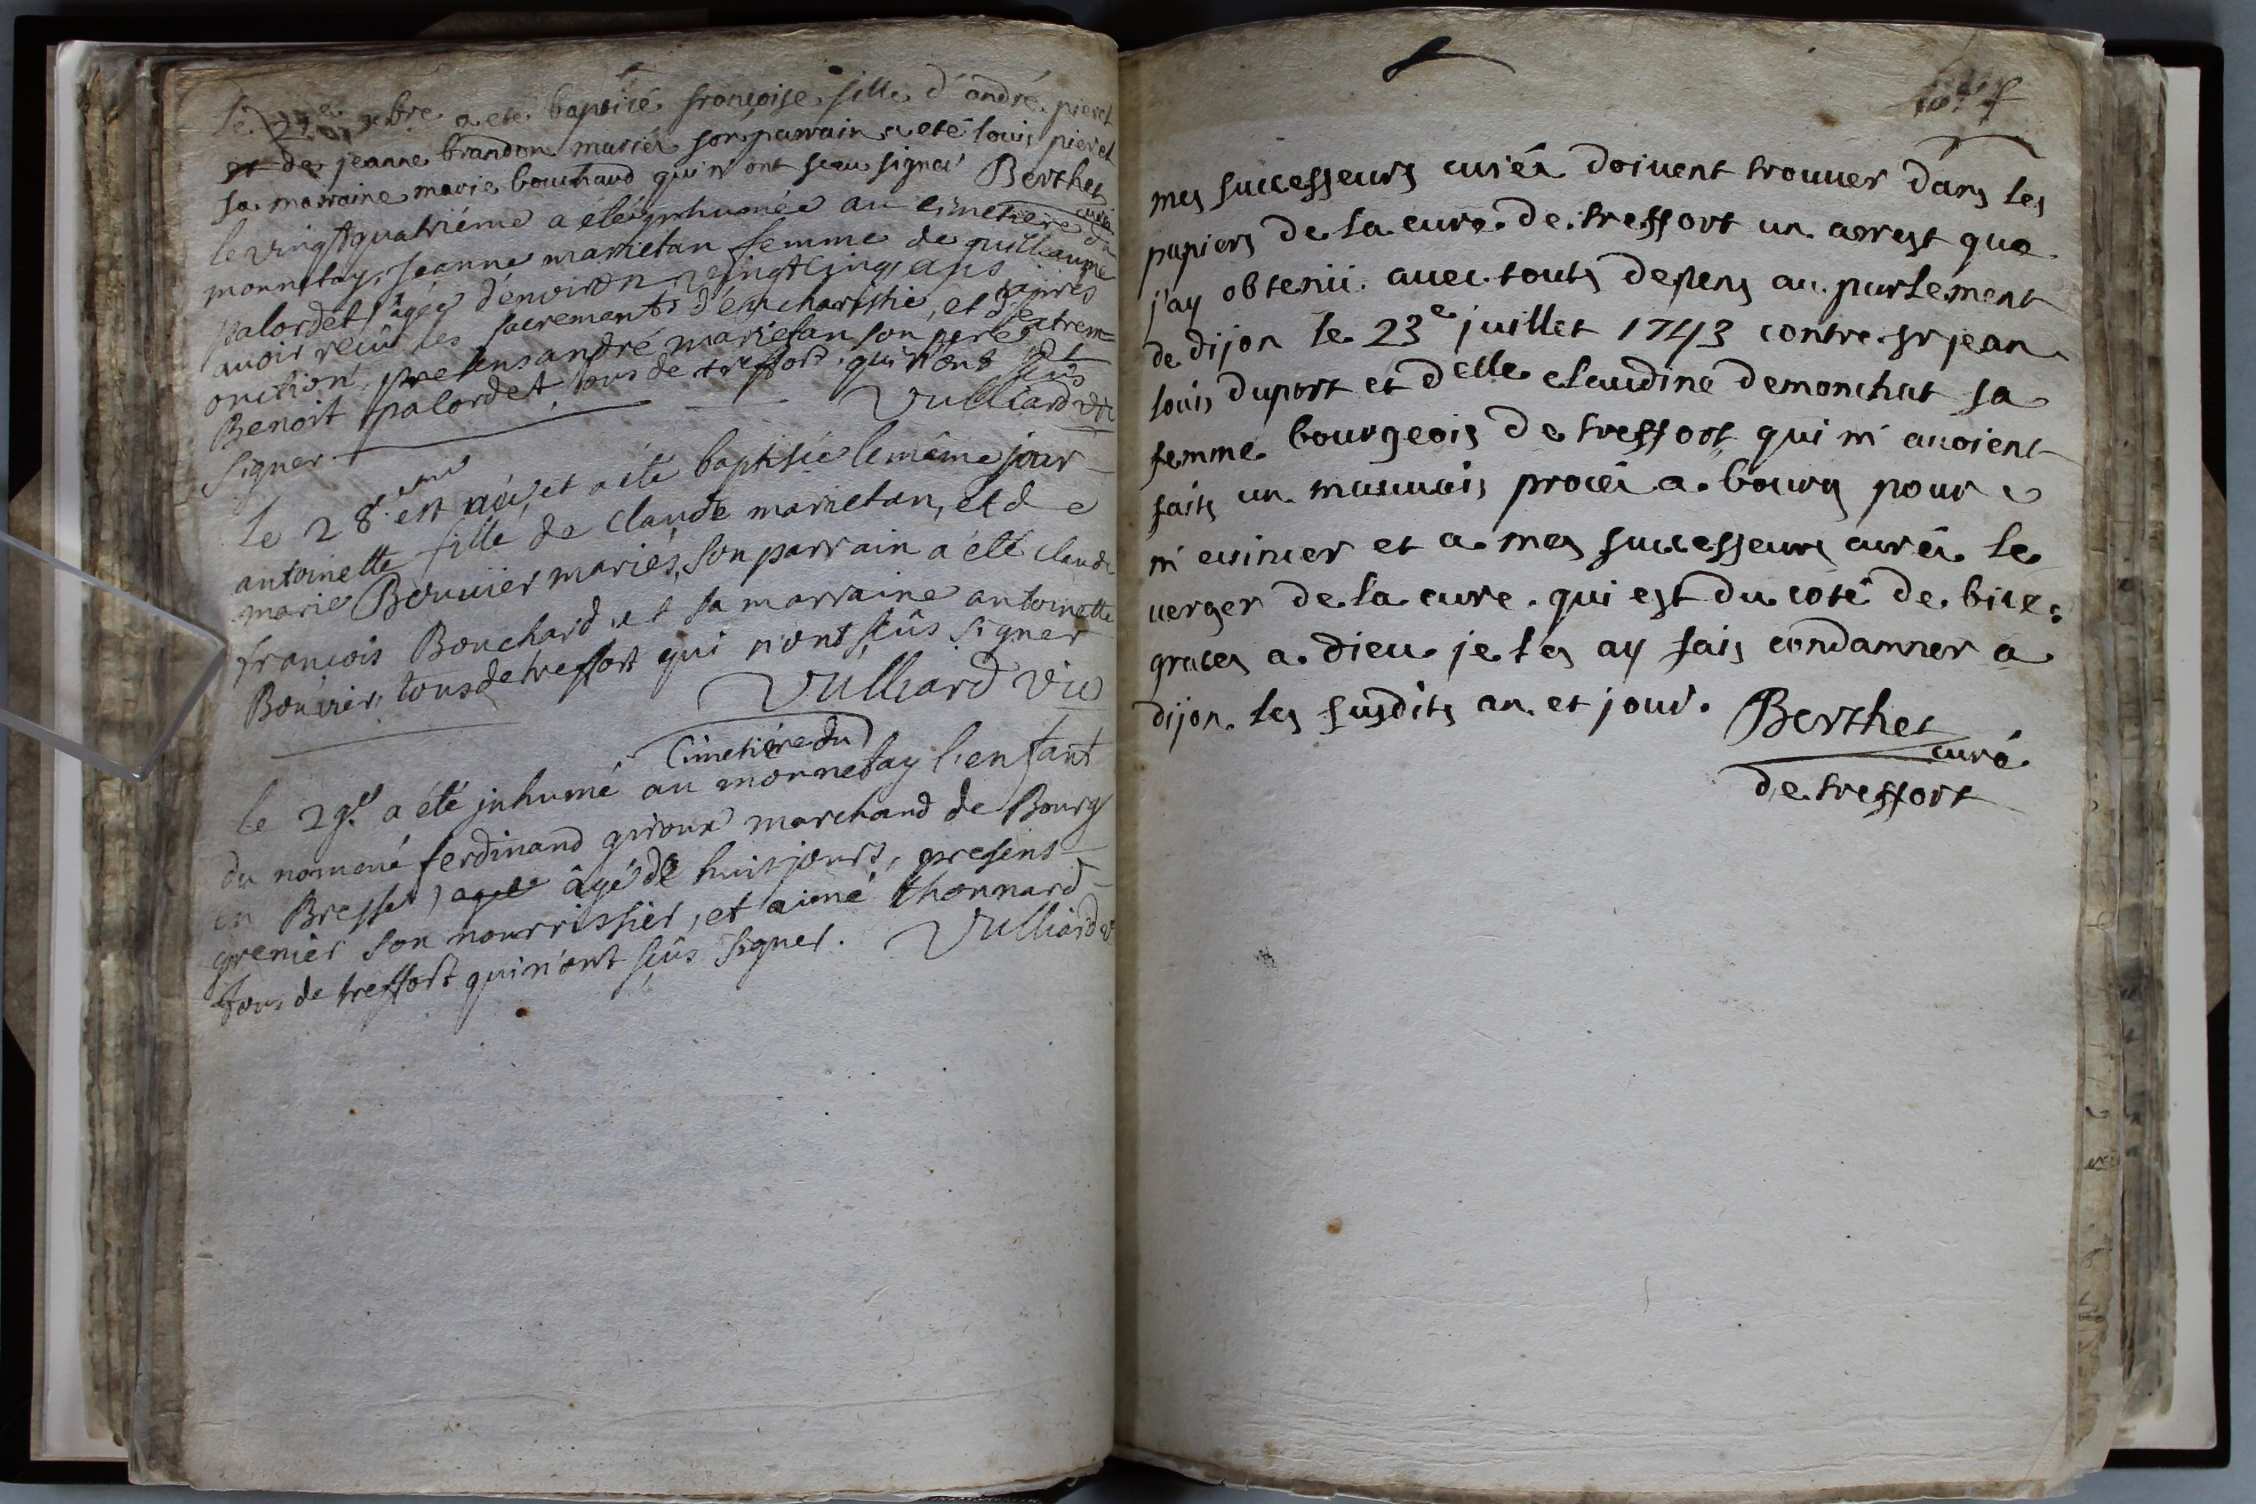 Le 23e xbre a eté baptisé françoise fille d'andré pieret
et de jeanne brandon mariés son parrain a eté louis pieret
sa marraine marie bouchaud qui n'ont sceu signer Berthet
curé
le vingtquatriéme a été jnhumée au cimetiere du
monnetay, jeanne marietan femme de guillaume
palordet, âgée d'environ vingtcinq ans, après
avoir reçû les sacrements d'eucharistie, et d'extrem=
onction, presens andré marietan son pere, et
Benoit palordet, tous de treffort, qui n'ont sçûs
signer. Vulliard vic
Le 28eme est née, et a été baptisée le même jour
antoinette fille de Claude marietan, et de
marie Bouvier mariés, son parrain a été claude
françois Bouchard, et sa marraine antoinette
Bouvier, tous de treffort qui n'ont sçûs signer
Vulliard vic
Cimetière du
le 29e a été jnhumé au monnetay l'enfant
du nommé ferdinand giroux marchand de Bourg
en Bresse, agée âgé de huit jours, presens
grenier son nourrissier, et aimé thonnard
tous de treffort qui n'ont sçûs signer. Vulliard v
mes successeurs curés doivent trouver dans les
papiers de la cure de treffort un arrest que
j'ay obtenu avec touts depens au parlement
de dijon le 23e juillet 1743 contre sr jean
louis duport et delle claudine demonchat sa
femme bourgeois de treffort qui m'avoient
faits un mauvais procés a bourg pour
m'evincer et a mes successeurs curés le
verger de la cure qui est du coté de bise.
graces a dieu je les ay fais condamner a
dijon les susdits an et jour. Berthet
curé
de treffort